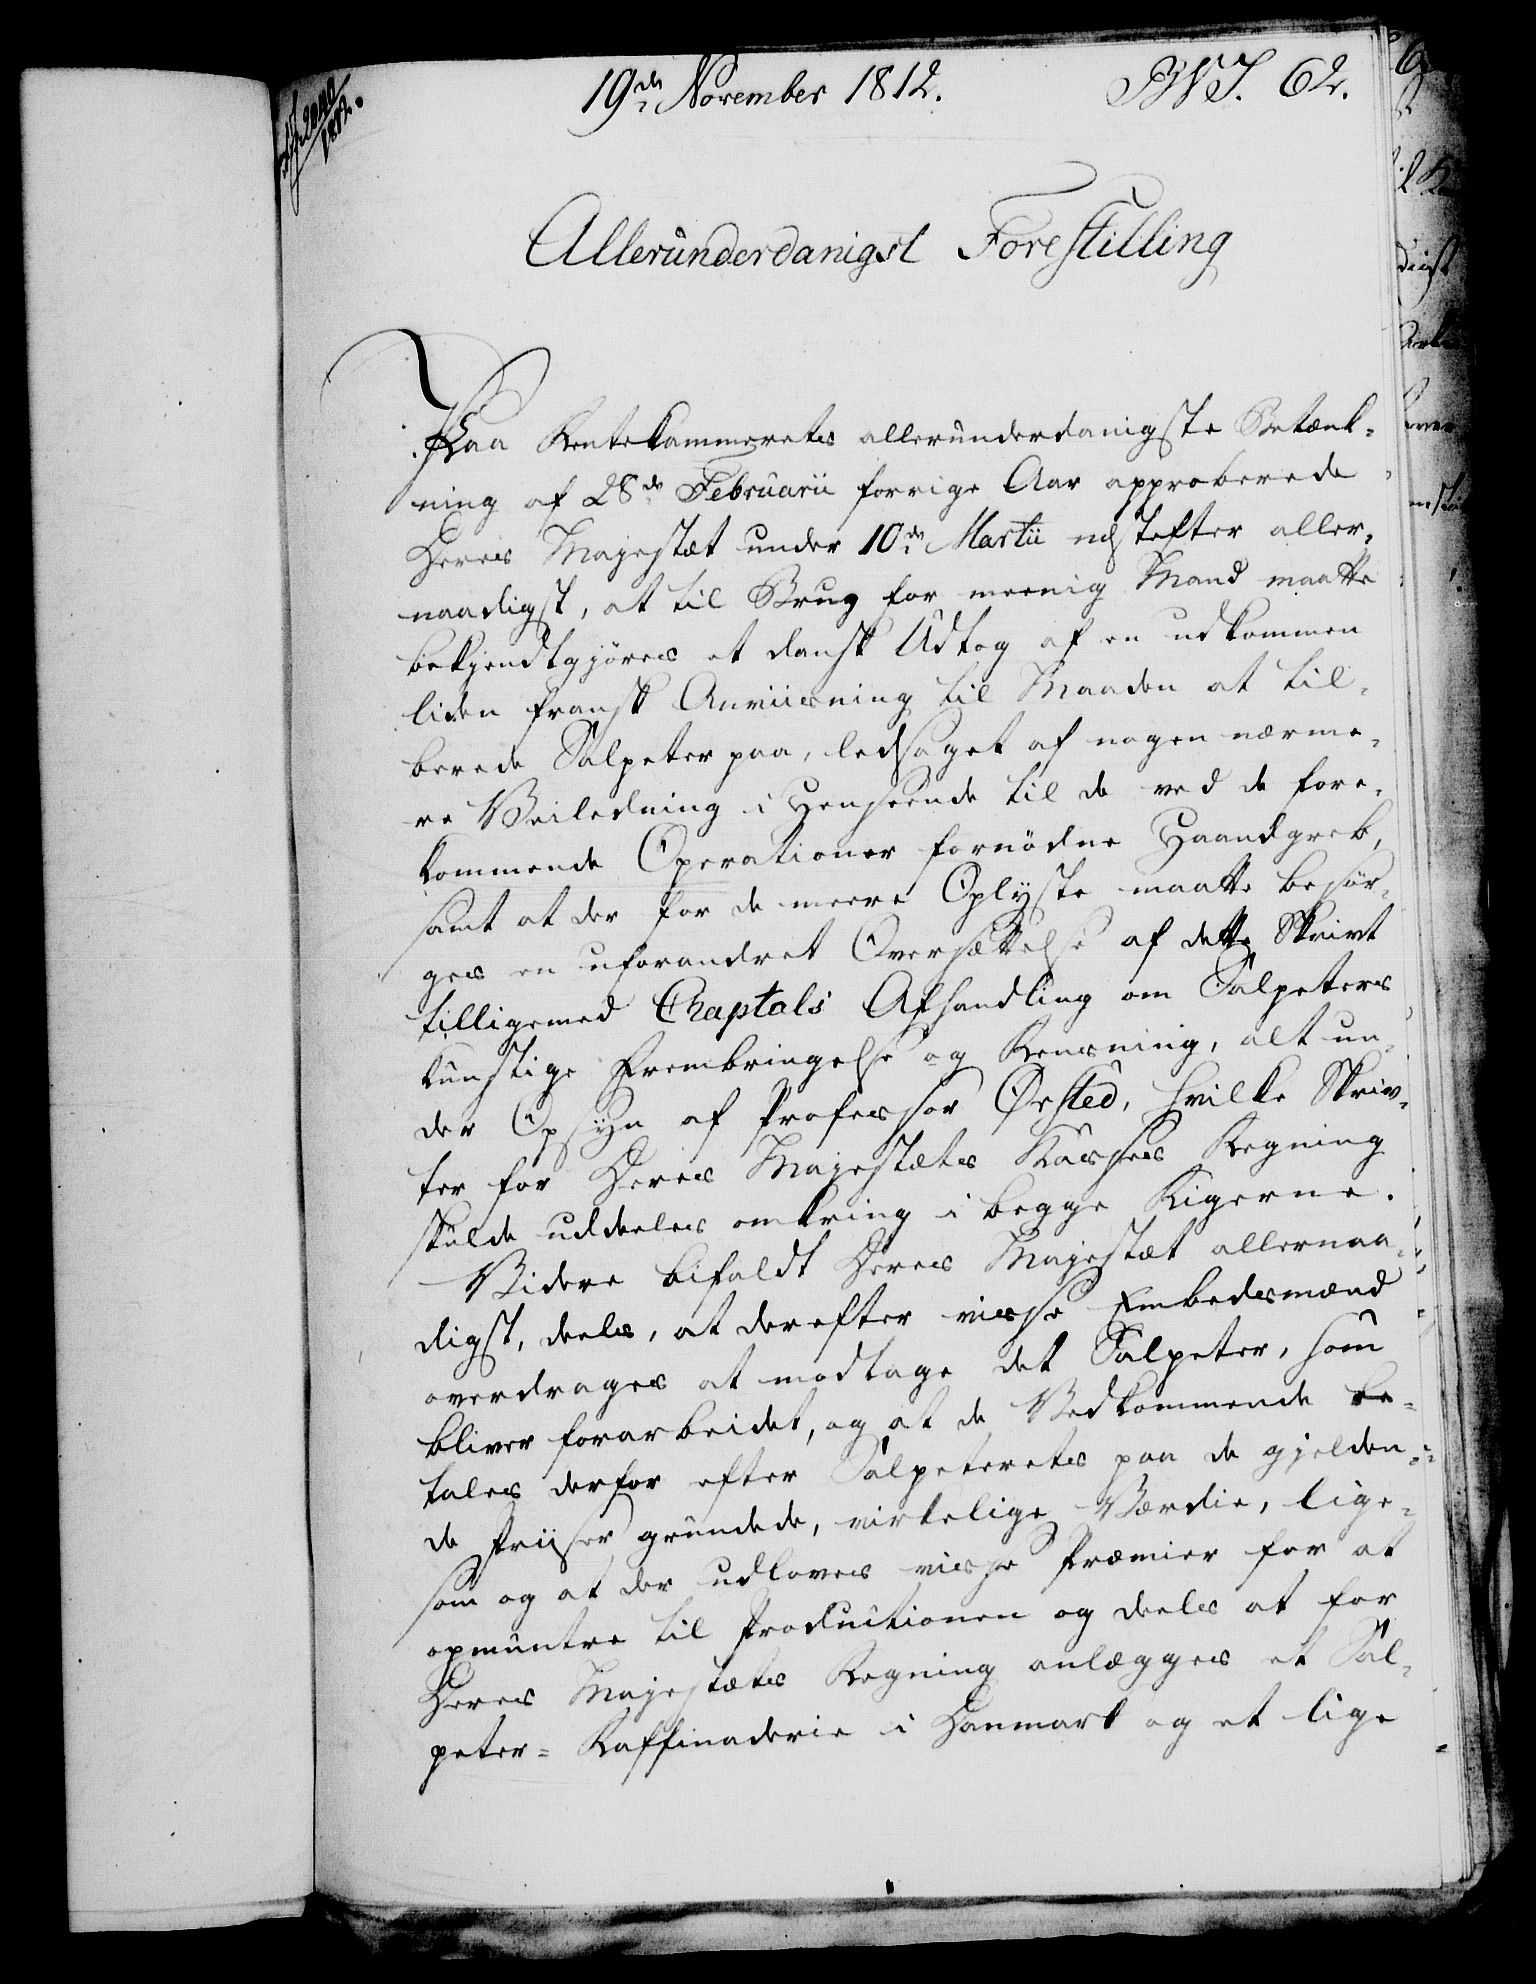 19de November 1812.
62.
Allerunderdanigst Forestilling
Paa Rentekammerets allerunderdanigste Betænk-
ning af 28de Februarii forrige Aar approberede
Deres Majestæt under 10de Martii næstefter aller-
naadigst, at til Brug for meenig Mand maatte
bekjendtgjøres et dansk Udtog af en udkommen
liden fransk Anviisning til Maaden at til-
berede Salpeter paa, ledsaget af nogen nærme-
re Veiledning i Henseende til de ved de fore-
kommende Operationer fornødne Haandgreb,
samt at der for de meere Oplyste maatte besør-
ges en uforandret Oversættelse af dette Skrivt
tilligemed Chaptals Afhandling om Salpeters
kunstige Frembringelse og Rensning, alt un-
der Opsyn af Professor Ørsted, hvilke Skriv-
ter for Deres Majestæts Kasses Regning
skulde uddeeles omkring i begge Rigerne.
Videre bifaldt Deres Majestæt allernaa-
digst, deels, at derefter visse Embedsmænd
overdrages at modtage det Salpeter, som
bliver forarbeidet, og at de Vedkommende be-
tales derfor efter Salpeterets paa de gjelden-
de Priiser grundede, virkelige Værdie, lige-
som og at der udloves visse Præmier for at
opmuntre til Productionen og deels at for
Deres Majestæts Regning anlægges et Sal-
peter-Raffinaderie i Danmark og et lige